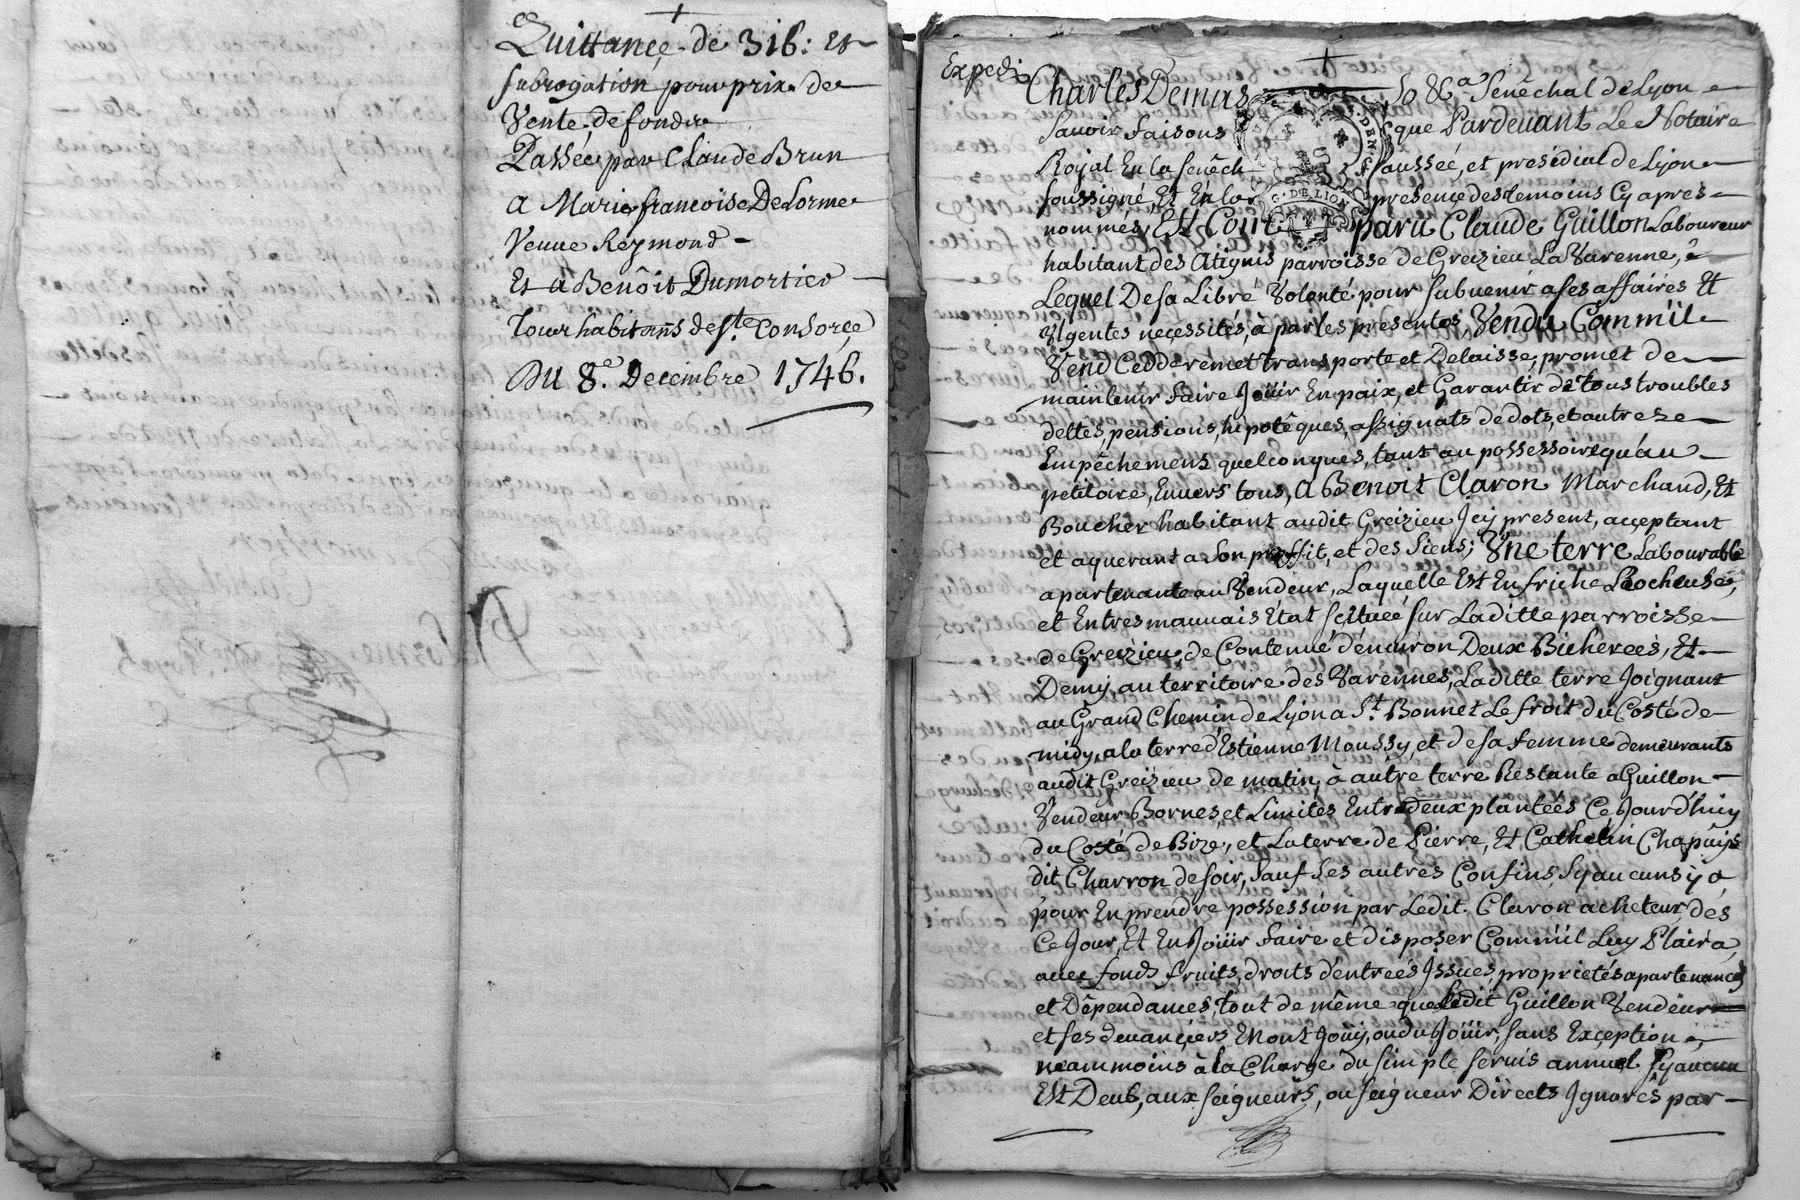 Quittance de 316: et
subrogation pour prix de
Vente de fonds
Passée par Claude Brun
a Marie françoise DeLorme
Veuve Reymond
Et a Benoît Dumortier
Tour habitans de Ste. Consorce
Du 8e. Decembre 1746.
Expedié
Charles Demas So &a Sénéchal de Lyon
Sauoir faisons que Pardeuant Le Notaire
Royal En la Sénéch aussée, et presidial de Lyon
soussigné, Et En la presence des temoins Cy apres
nommés, Est Com paru Claude Guillon Laboureur
habitant des Atignis parroisse de Greizieu La Varenne,
Lequel De sa Libre Volonté pour subuenir a ses affaires Et
Vrgentes necessités, à par les presentes, Vendu Comm'il
Vend Cedde remet transporte et Delaisse, promet de
maintenir faire Joüir En paix, et Garantir de tous troubles
dettes, pensions, hipotêques, assignats de dots, et autres
Empêchemens quelconques, tant au possessoire qu'au
petitoire, Enuers tous, a Benoit Claron Marchand, Et
Boucher habitant audit Greizieu Jcy present, acceptant
et aquerant a son proffit, et des siens; Vne terre Labourable
apartenante au Vendeur, Laquelle Est En friche Rocheuse,
et En tres mauuais Etat scituée sur Laditte parroisse
de Greizieu, de Contenue d'enuiron Deux Bicherées, Et
Demy, au territoire des Varennes, Laditte terre Joignant
au Grand Chemin de Lyon a St. Bonnet Le froit du Costé de
midy, a la terre d'Estienne Moussy, et de sa femme demeurants
audit Greizieu de matin, à autre terre Restante a Guillon
Vendeur Bornes, et Limites Entre deux plantées Ce Jourd'huy
du Costé de Bize, et La terre de Pierre, Et Cathelin Chapuys
dit Charron de soir, Sauf Ses autres Confins, sy aucuns y a
pour En prendre possession par Ledit Claron acheteur, dés
Ce Jour, Et En Joüir faire et disposer Comm'il Luy Plaira,
auec fonds fruits, droits d'entreés Jssues, proprietés apartenances
et Dêpendances, tout de même que Ledit Guillon Vendeur
et ses deuanciers En ont Joüy, ou du Joüir, sans Exception
neammoins à la Charge du simple seruis annuel sy aucun
Est Deub, aux seigneurs, ou seigneur Directs Jgnorés par